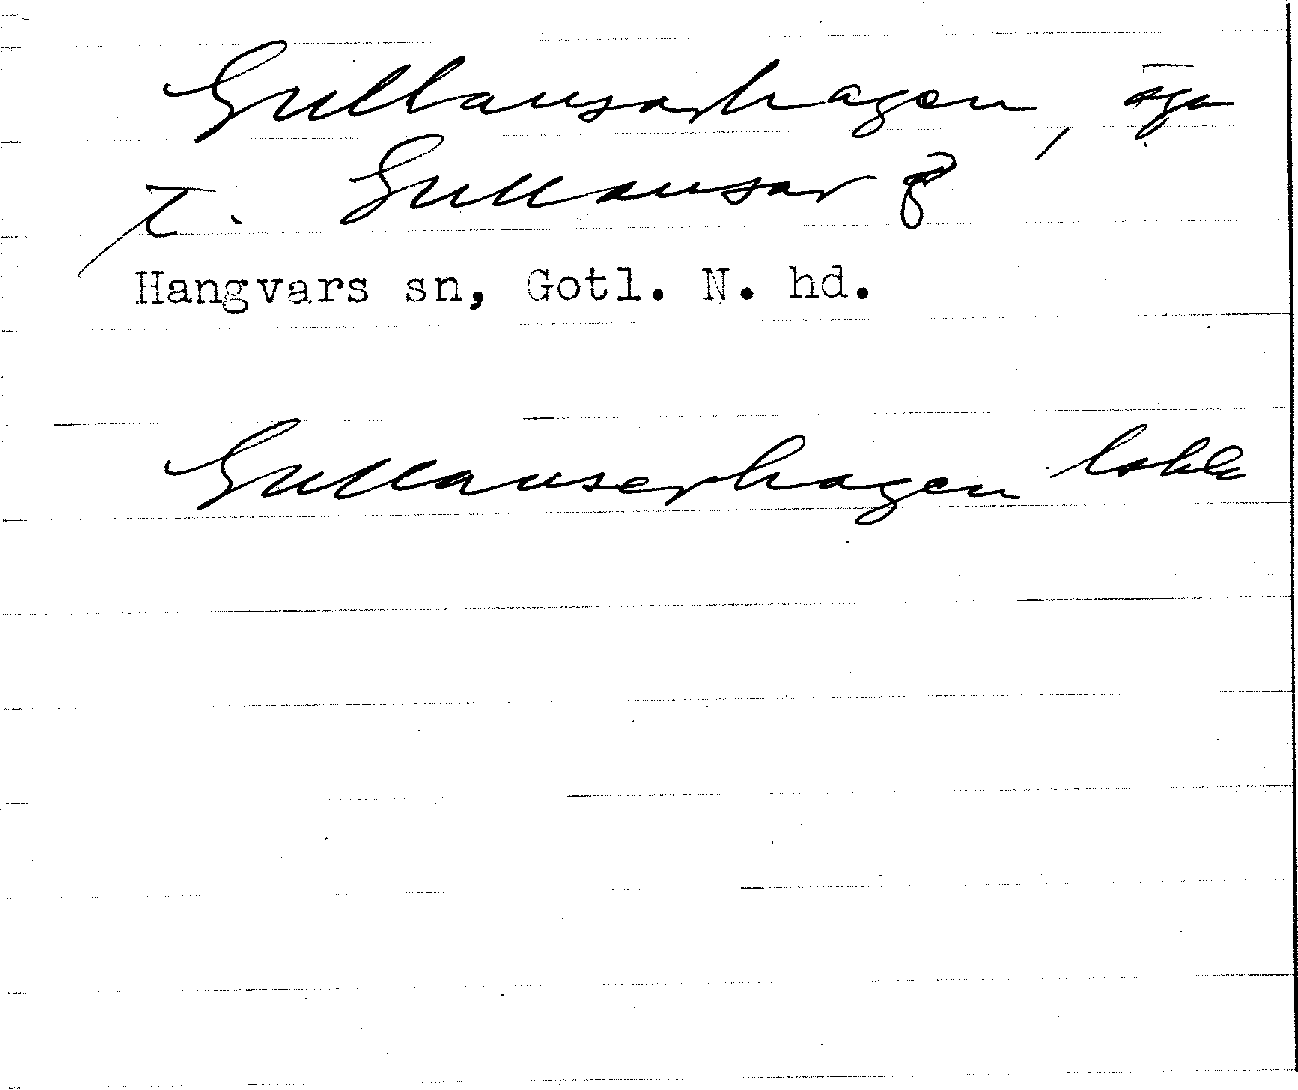 Gullausarhagen, äga
t. Gullausar
Hangvars sn, Gotl. N. hd.
Gullauserhagen